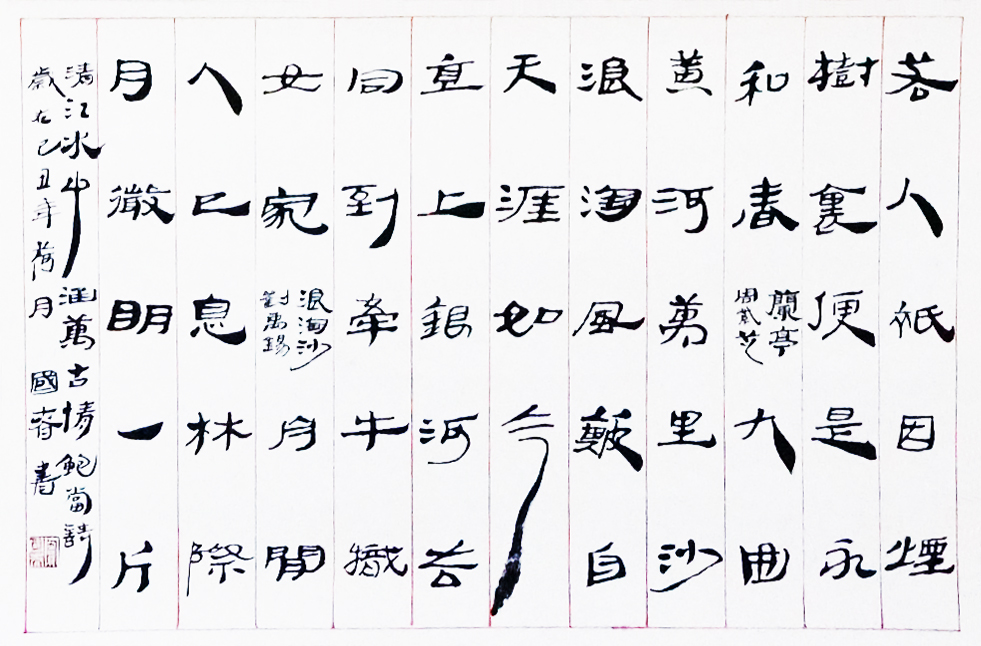 若人祇因煙
樹裏便是永
和春
蘭亭
九曲
黃河萬里沙
浪淘風簸自
天涯如今
直上銀河去
同到牽牛織
女家
浪淘沙
劉禹錫
舟閒
人已息林際
月微明一片
清江水中涵萬古情鮑當詩
歲在己丑年荷月國春書